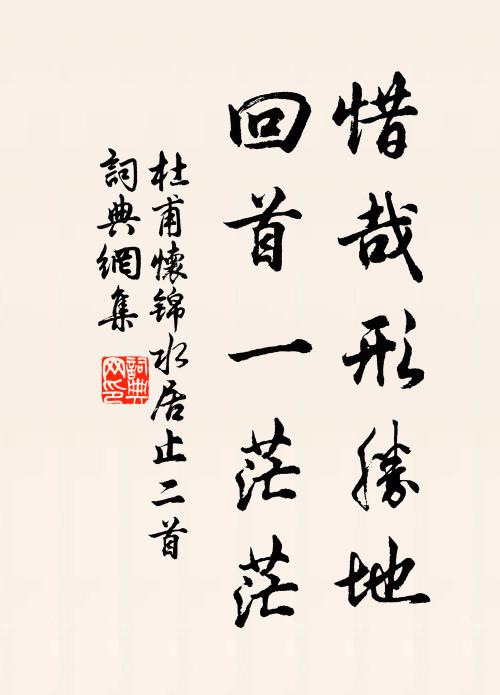 惜哉形勝地
回首一茫茫
杜甫懷錦水居止二首
詞典網集
詞典網印